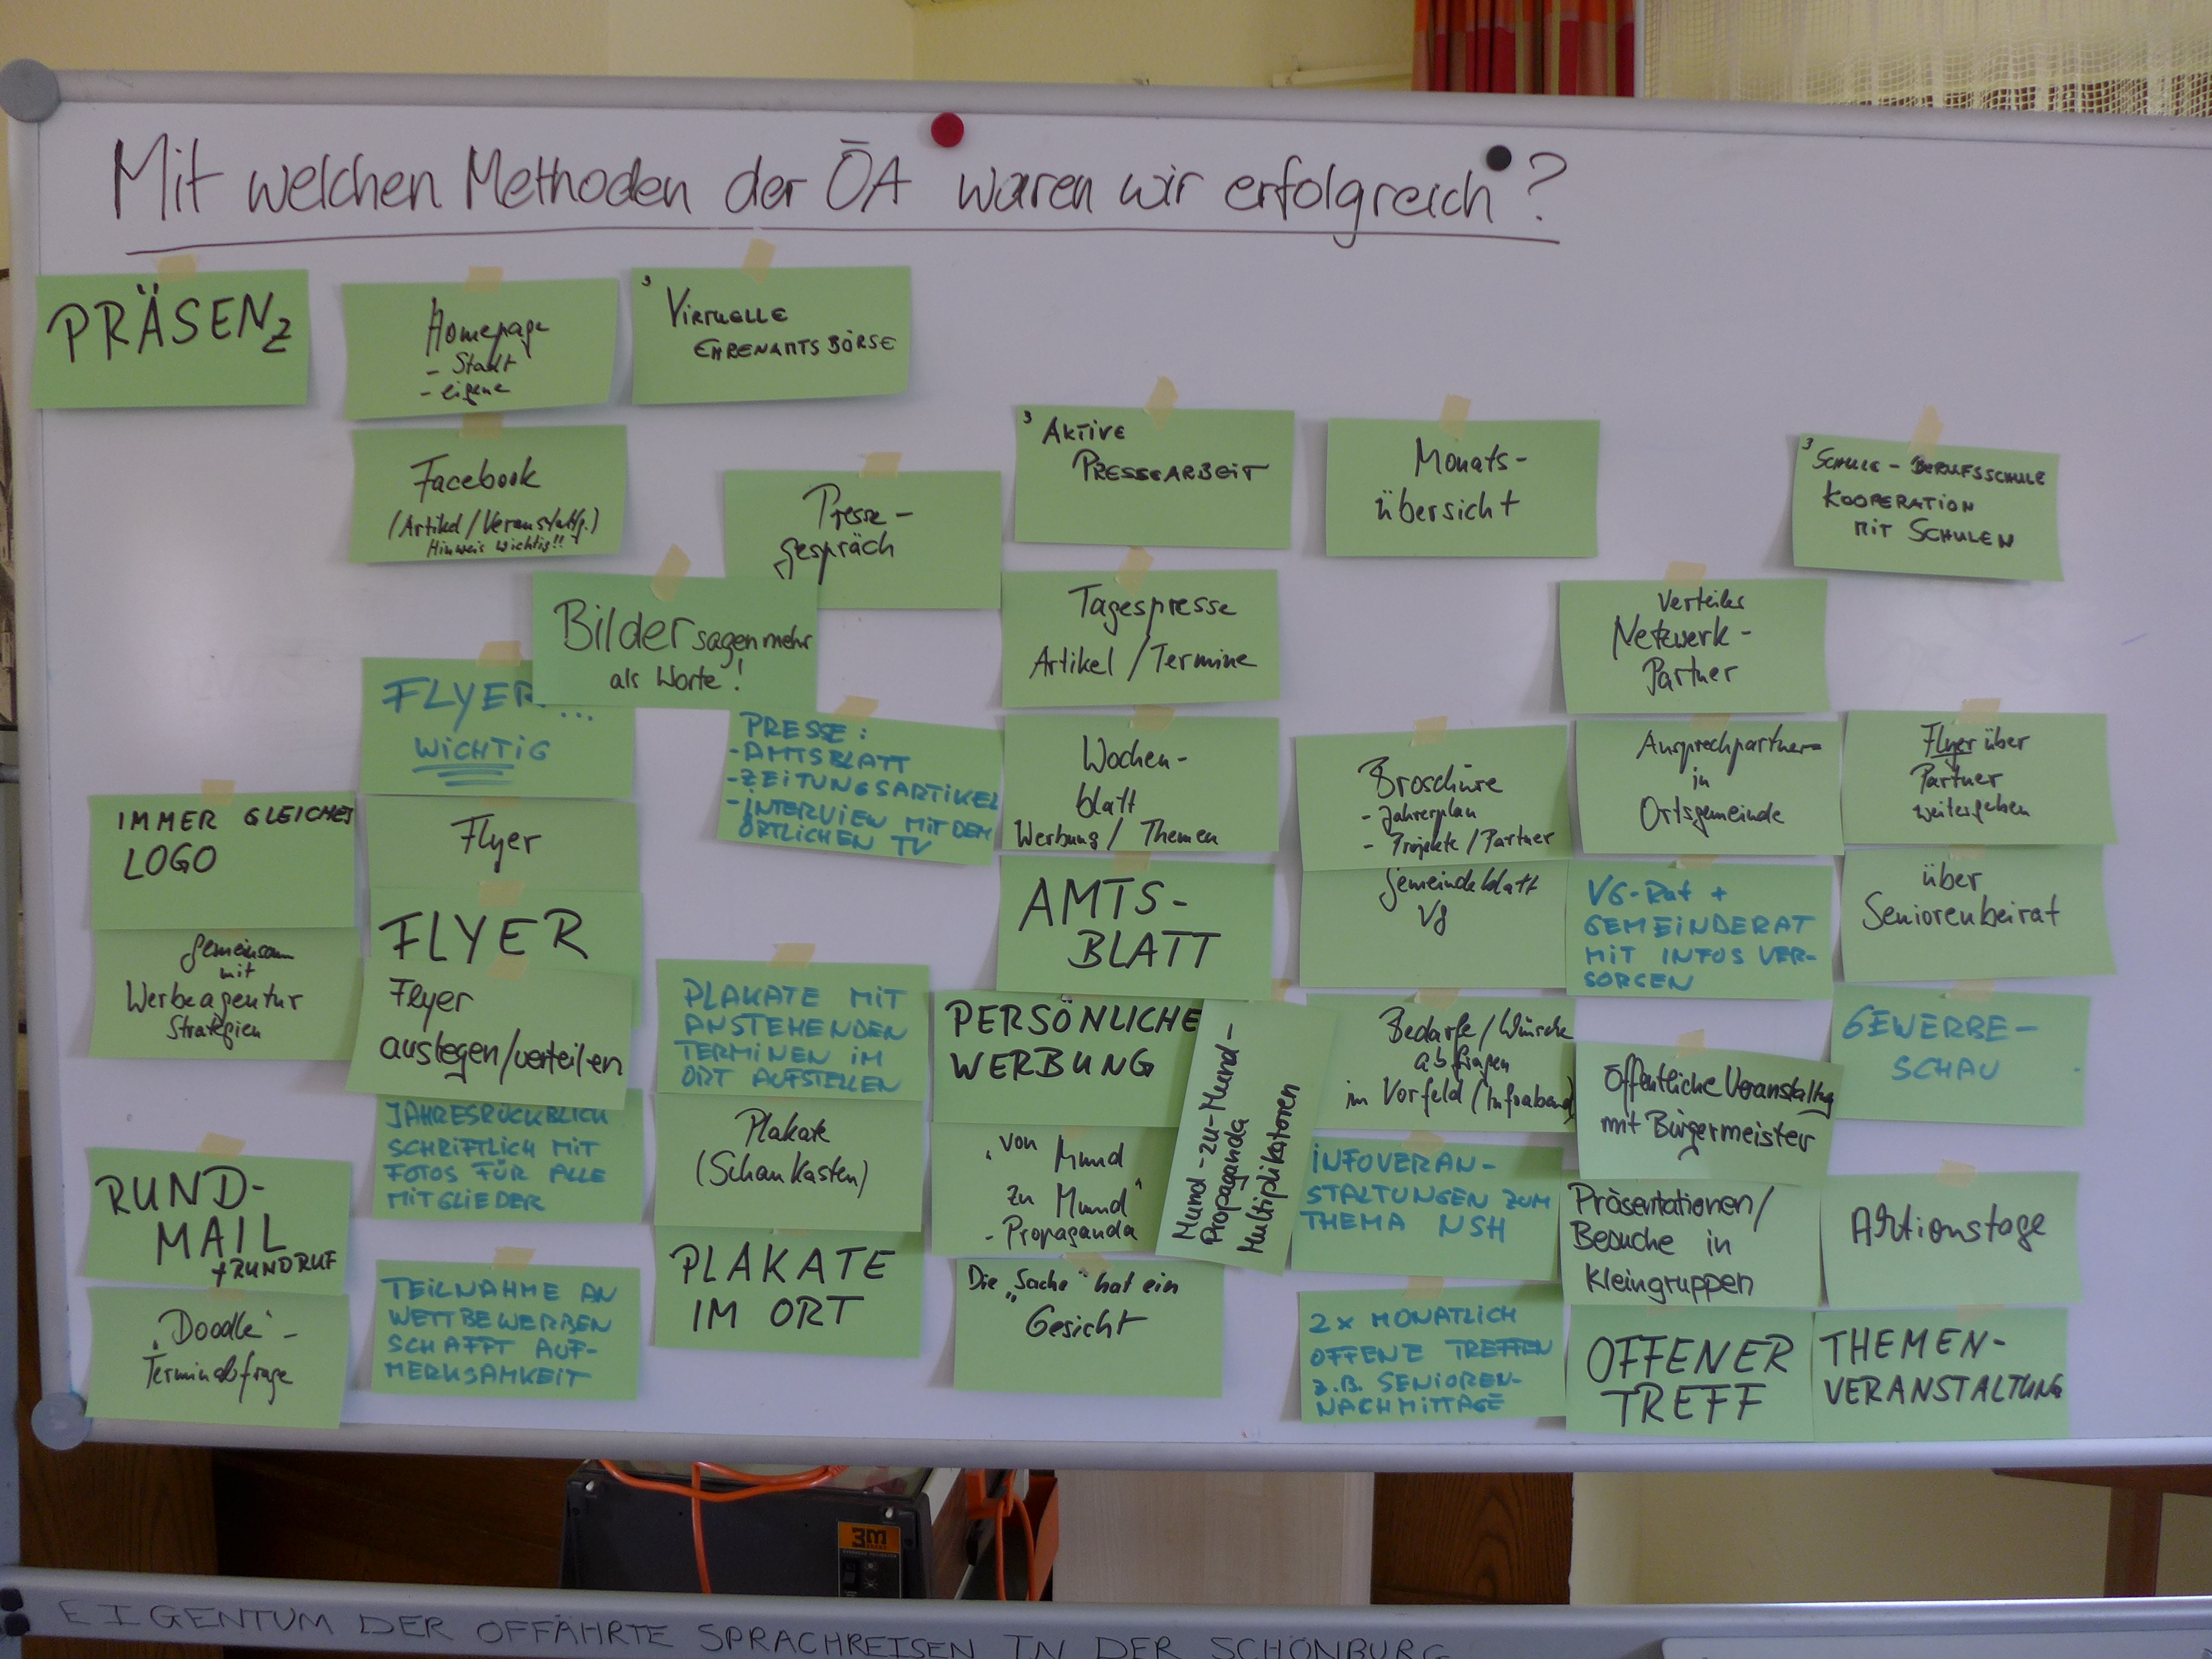 Mit welchen Methoden der ÖA waren wir erfolgreich?
PRÄSENZ
Homepage
- Stadt
- eigene
3 VIRTUELLE
EHRENAMTSBÖRSE
Facebook
(Artikel/Veranstaltg.)
Hinweis wichtig!!
Presse-
gespräch
3 AKTIVE
PRESSEARBEIT
Monats-
übersicht
3 SCHULE - BERUFSSCHULE
KOOPERATION
MIT SCHULEN
Bilder sagen mehr
als Worte!
Tagespresse
Artikel / Termine
Verteiler
Netzwerk-
Partner
FLYER...
WICHTIG
PRESSE:
- AMTSBLATT
- ZEITUNGSARTIKEL
- INTERVIEW MIT DEM
ÖRTLICHEN TV
Wochen-
blatt
Werbung / Themen
Broschüre
- Jahresplan
- Projekte / Partner
Ansprechpartner-
in
Ortsgemeinde
Flyer über
Partner
weitergeben
IMMER GLEICHES
LOGO
Flyer
AMTS-
BLATT
Gemeindeblatt
VG
VG-Rat +
GEMEINDERAT
MIT INFOS VER-
SORGEN
über
Seniorenbeirat
Gemeinsam
mit
Werbeagentur
Strategien
FLYER
Flyer
auslegen/verteilen
PLAKATE MIT
ANSTEHENDEN
TERMINEN IM
ORT AUFSTELLEN
PERSÖNLICHE
WERBUNG
Mund-zu-Mund-
Propaganda
Multiplikatoren
Bedarfe/Wünsche
abfragen
im Vorfeld (Infoabend)
Öffentliche Veranstaltung
mit Bürgermeister
GEWERBE-
SCHAU
RUND-
MAIL
+ RUNDRUF
JAHRESRÜCKBLICK
SCHRIFTLICH MIT
FOTOS FÜR ALLE
MITGLIEDER
Plakate
(Schaukasten)
"von Mund
zu Mund"
- Propaganda
INFOVERAN-
STALTUNGEN ZUM
THEMA NSH
Präsentationen/
Besuche in
Kleingruppen
Aktionstage
"Doodle"-
Terminabfrage
TEILNAHME AN
WETTBEWERBEN
SCHAFFT AUF-
MERKSAMKEIT
PLAKATE
IM ORT
Die "Sache" hat ein
Gesicht
2x MONATLICH
OFFENE TREFFEN
z.B. SENIOREN-
NACHMITTAGE
OFFENER
TREFF
THEMEN-
VERANSTALTUNG
3M
EIGENTUM DER OFFÄHRTE SPRACHREISEN IN DER SCHÖNBURG